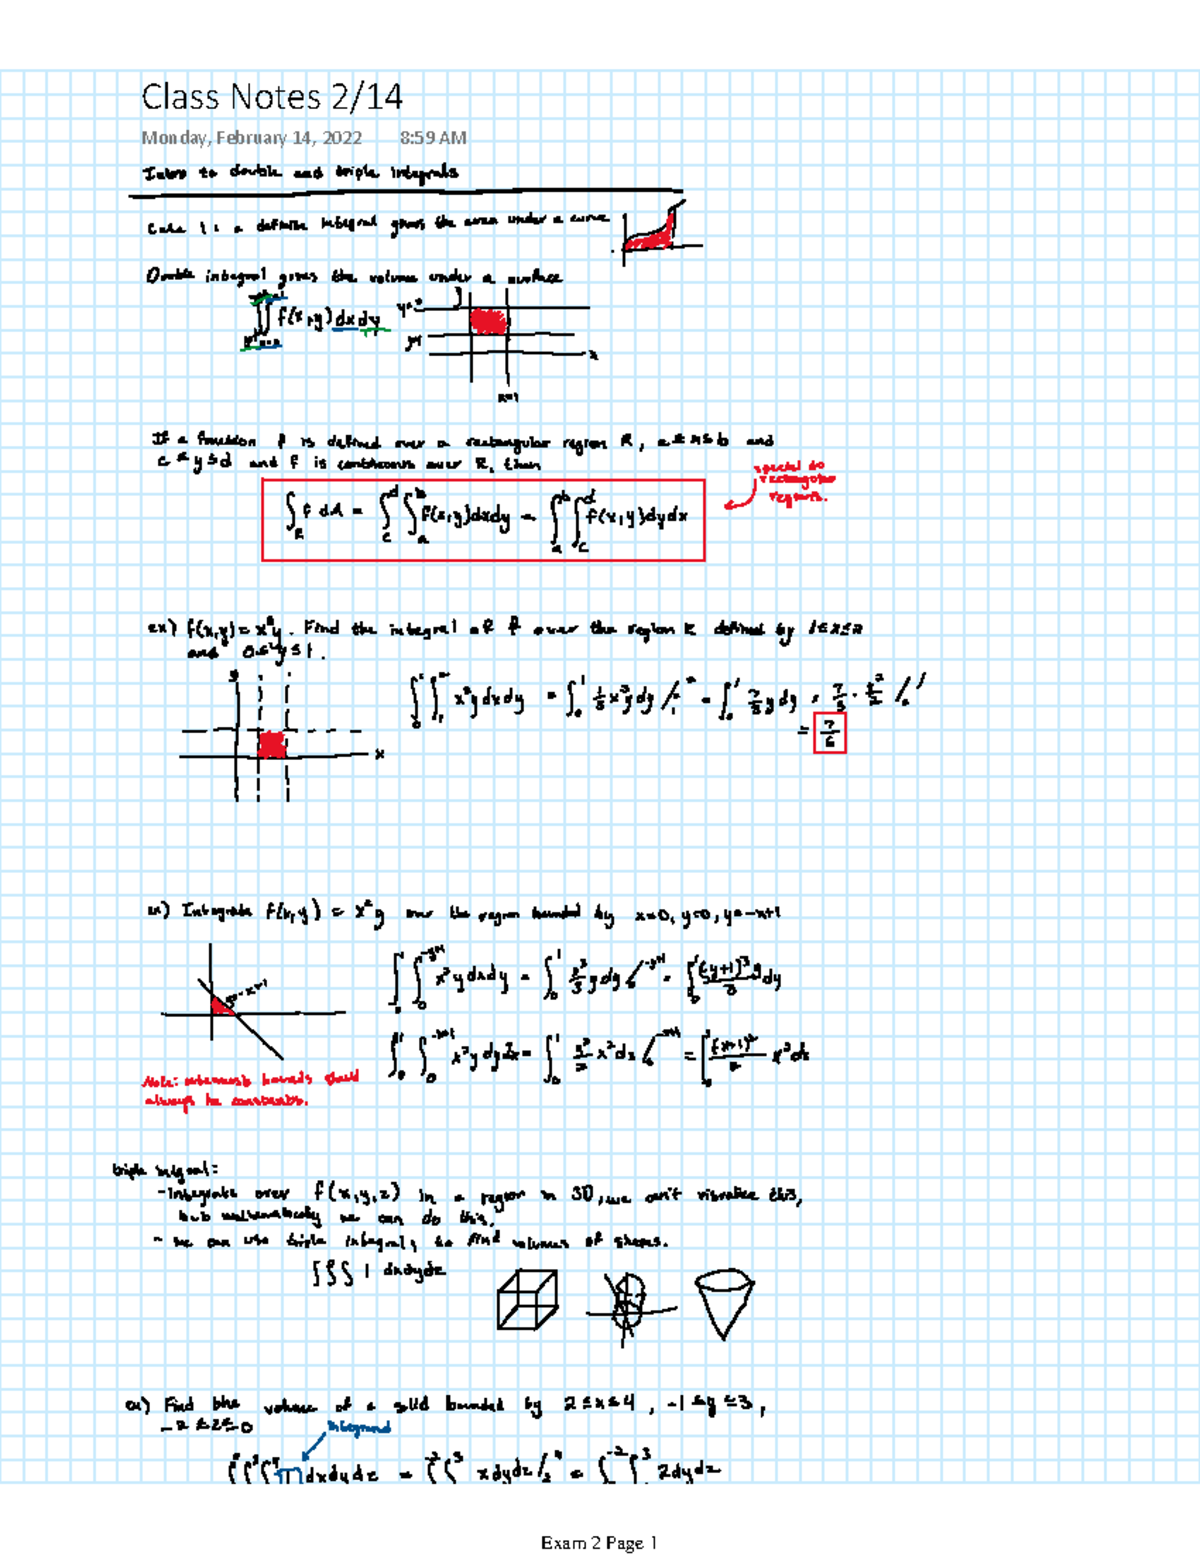 Class Notes 2/14
Monday, February 14, 2022 8:59 AM
Intro to double and triple integrals
Calc 1: a definite integral gives the area under a curve
Double integral gives the volume under a surface
∫∫ f(x,y) dx dy
x
x=1
If a function f is defined over a rectangular region R, a≤x≤b and
c≤y≤d and f is continuous over R, then
special to
rectangular
regions.
∫_R f dA = ∫_c^d ∫_a^b f(x,y)dxdy = ∫_a^b ∫_c^d f(x,y)dydx
ex) f(x,y) = x²y. Find the integral of f over the region R defined by 1≤x≤2
and 0≤y≤1.
y
x
∫_0^1 ∫_1^2 x²y dx dy = ∫_0^1 1/3 x³y dy /_1^2 = ∫_0^1 7/3 y dy = 7/3 · y²/2 /_0^1
= 7/6
ex) Integrate f(x,y) = x²y over the region bounded by x=0, y=0, y=-x+1
y=-x+1
∫_0^1 ∫_0^{-y+1} x²y dx dy = ∫_0^1 x³/3 y dy /_0^{-y+1} = ∫_0^1 (-y+1)³/3 y dy
∫_0^1 ∫_0^{-x+1} x²y dy dx = ∫_0^1 y²/2 x² dx /_0^{-x+1} = ∫_0^1 (-x+1)²/2 x² dx
Note: outermost bounds should
always be constants.
triple integral:
- Integrate over f(x,y,z) in a region in 3D, we can't visualize this,
but mathematically we can do this.
- we can use triple integrals to find volumes of shapes.
∫∫∫ 1 dxdydz
ex) Find the volume of a solid bounded by 2≤x≤4, -1≤y≤3,
-2≤z≤0
integrand
dxdydz = xdydz /_2^4 = 2dydz
Exam 2 Page 1